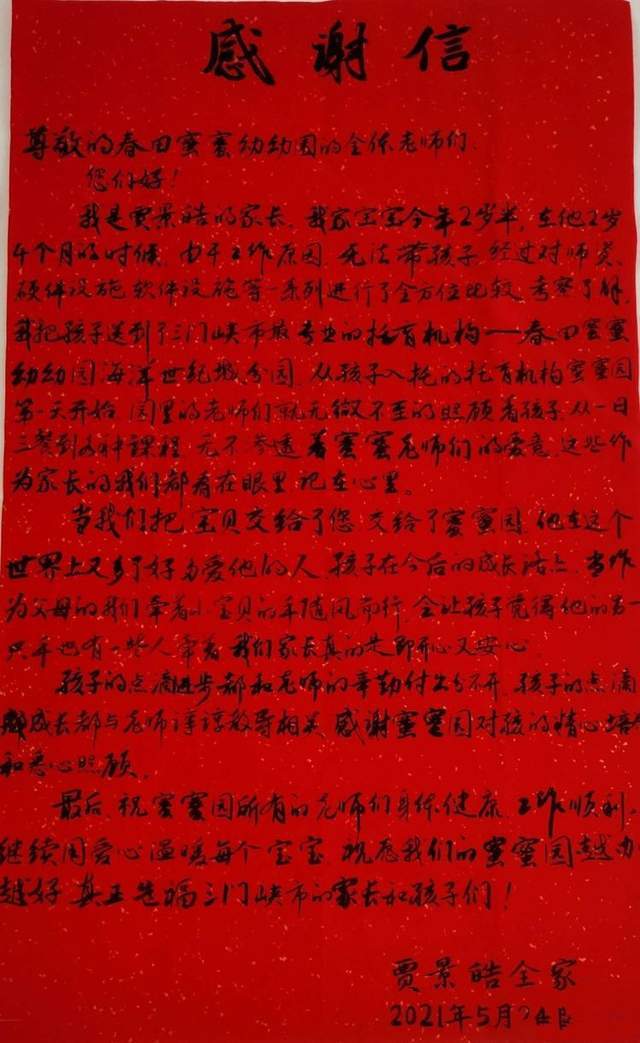 感谢信
尊敬的春田蜜蜜幼幼园的全体老师们.
您们好!
我是贾景皓的家长.我家宝宝今年2岁半,在他2岁
4个月的时候,由于工作原因,无法带孩子,经过对师资、
硬件设施,软件设施等一系列进行了全方位比较,考察了解,
我把孩子送到了三门峡市最专业的托育机构——春田蜜蜜
幼幼园海洋世纪城分园.从孩子入托的托育机构蜜蜜园
第一天开始,园里的老师们就无微不至的照顾着孩子,从一日
三餐到各种课程,无不渗透着蜜蜜老师们的爱意,这些作
为家长的我们都看在眼里,记在心里。
当我们把宝贝交给了您,交给了蜜蜜园,他在这个
世界上又多了好多爱他的人,孩子在今后的成长路上,当作
为父母的我们牵着小宝贝的手随风而行,会让孩子觉得他的另一
只手也有一些人牵着,我们家长真的是即开心又安心.
孩子的点滴进步都和老师的辛勤付出分不开,孩子的点滴
成长都与老师谆谆教导相关,感谢蜜蜜园对孩的精心培
和悉心照顾.
最后,祝蜜蜜园所有的老师们身体健康,工作顺利,
继续用爱心温暖每个宝宝,祝愿我们的蜜蜜园越办
越好,真正造福三门峡市的家长和孩子们!
贾景皓全家
2021年5月24日